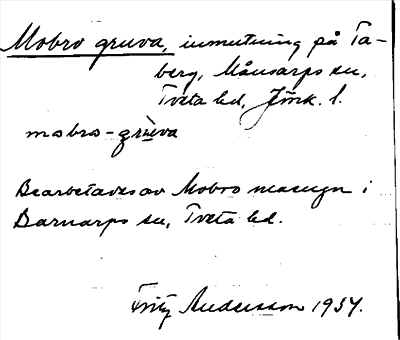 Mobro gruva, inmutning på Ta-
berg, Månsarps sn,
Tveta hd, Jönk. l.
mobro-grùva
Bearbetades av Mobro masugn i
Barnarps sn, Tveta hd.
Fritz Andersson 1934.